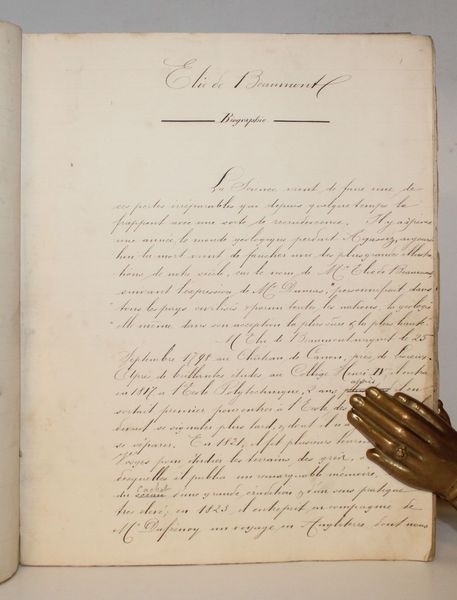 Elie de Beaumont
Biographie.
La Science vient de faire une de
ces pertes irréparables qui depuis quelque temps la
frappent avec une sorte de recrudescence. Il y a à peine
une année le monde géologique perdait Agassiz, aujourd'hui
la mort vient de faucher une des plus grandes illustra-
tions de notre siècle, car le nom de Mr Elie de Beaumont,
suivant l'expression de Mr Dumas, "personnifiait dans
tous les pays civilisés, parmi toutes les nations, la géologie
elle même dans son acception la plus sûre & la plus haute.
M. Elie de Beaumont naquit le 25
Septembre 1798 au Château de Canon, près de
Après de brillantes études au Collège Henri IV, il entra
en 1817 à l'Ecole Polytechnique, 2 ans après il en
sortait premier pour entrer à l'Ecole des
devait se signaler plus tard, & dont il n'a
se séparer. En 1821, il fit plusieurs
Vosges pour étudier les terrains des grès,
desquelles il publia un remarquable mémoire,
du cachet d'une grande érudition & d'un sens pratique
très élevé; en 1823 il entreprit en compagnie de
Mr Dufrénoy un voyage en Angleterre dont nous